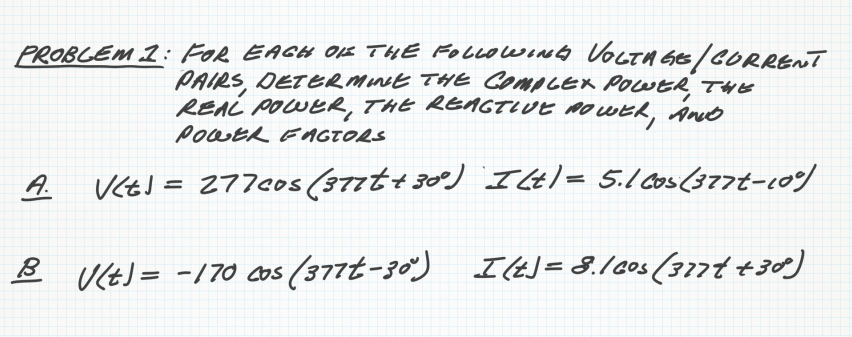 PROBLEM 1: FOR EACH OF THE FOLLOWING VOLTAGE/CURRENT
PAIRS, DETERMINE THE COMPLEX POWER, THE
REAL POWER, THE REACTIVE POWER, AND
POWER FACTORS
A. V(t) = 277cos(377t+30°) I(t) = 5.1cos(377t-10°)
B V(t) = -170 cos(377t-30°) I(t) = 8.1cos(377t+30°)